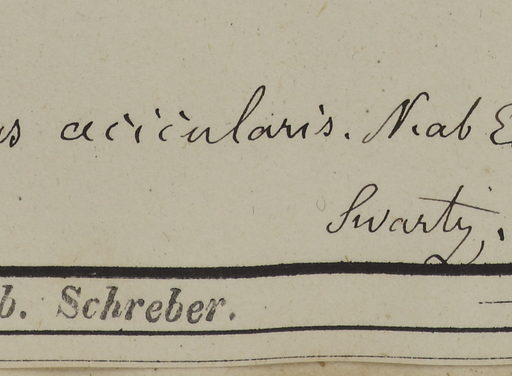 us acicularis. Neab E
Swartz.
b. Schreber.